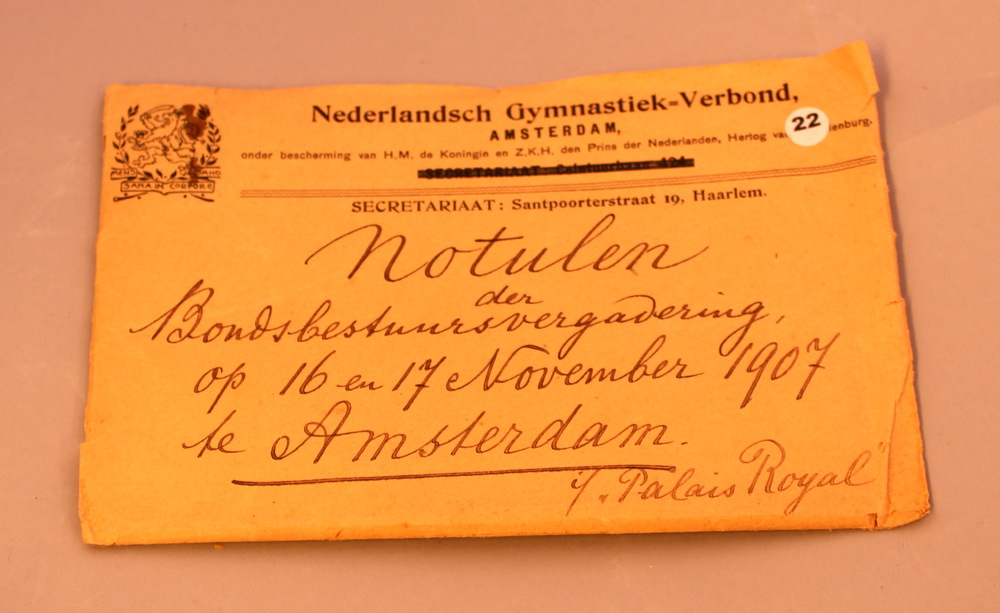 Nederlandsch Gymnastiek-Verbond,
AMSTERDAM,
22
onder bescherming van H.M. de Koningin en Z.K.H. den Prins der Nederlanden, Hertog va lenburg.
SECRETARIAAT
SECRETARIAAT: Santpoorterstraat 19, Haarlem.
MENS SANA IN CORPORE SANO
Notulen
der
Bondsbestuursvergadering,
op 16 en 17 November 1907
te Amsterdam.
i/ „Palais Royal"